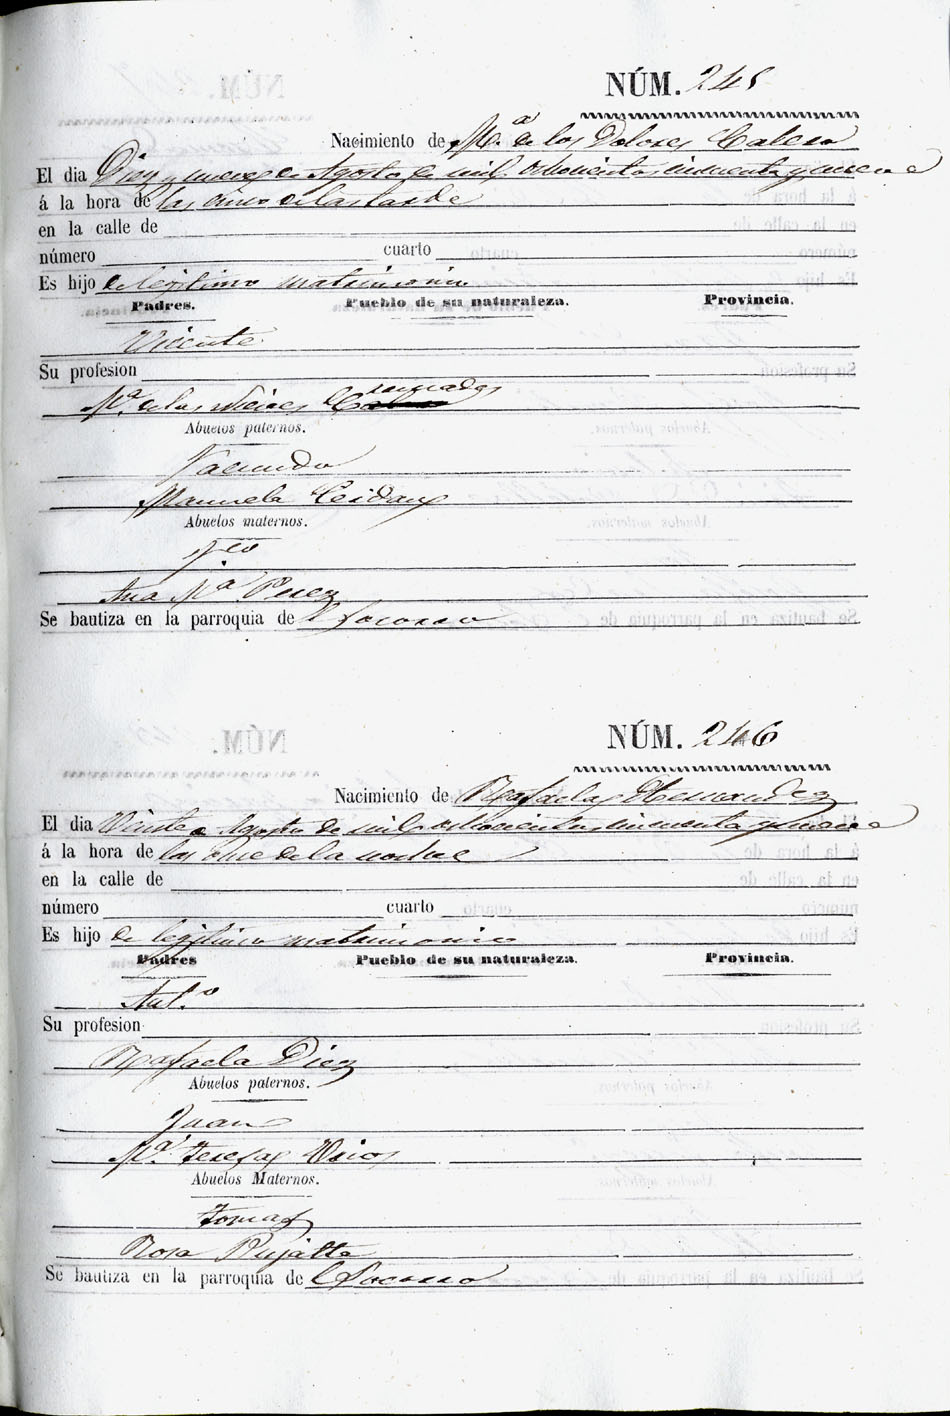 NÚM. 245
Nacimiento de Mª. de los Dolores Calero
El dia Diez y nueve de Agosto de mil ochocientos cincuenta y nueve
á la hora de las cinco de la tarde
en la calle de
número cuarto
Es hijo de legitimo matrimonio
Padres. Pueblo de su naturaleza. Provincia.
Vicente
Su profesion
Mª. de las Nieves Granados
Abuelos paternos.
Facundo
Manuela
Abuelos maternos.
Fco
Ana Mª Perez
Se bautiza en la parroquia de l Socorro
NÚM. 246
Nacimiento de Rafaela Hernandez
El dia Veinte Agosto de mil ochocientos cincuenta y nueve
á la hora de las once de la noche
en la calle de
número cuarto
Es hijo de legitimo matrimonio
Padres Pueblo de su naturaleza. Provincia.
Antº
Su profesion
Rafaela Diez
Abuelos paternos.
Juan
Mª. Teresa
Abuelos Maternos.
Tomas
Rosa Pujalte
Se bautiza en la parroquia de l Socorro